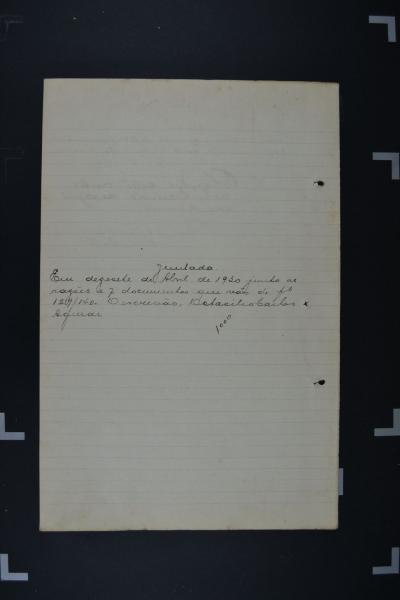 Juntada
Em desesete de Abril de 1930 junto as
razões e 7 documentos que vão de fs
129/140. O escrivão, Estacilio Carlos
Aguiar
1000